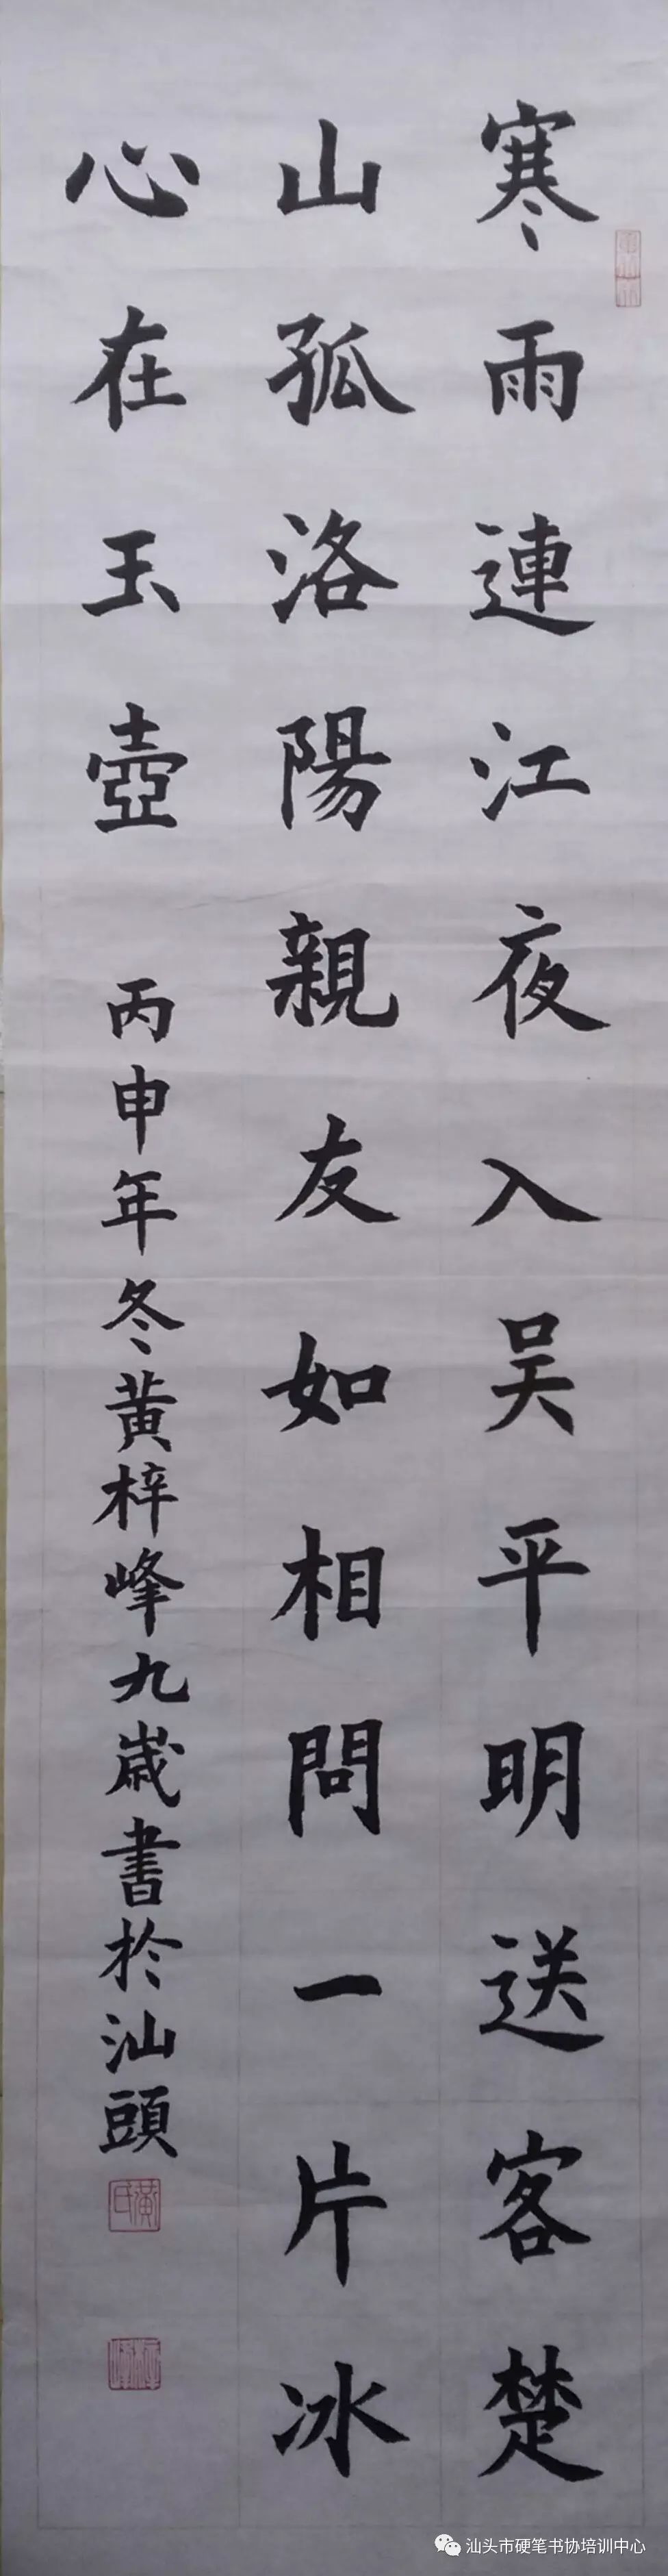 寒雨連江夜入吴平明送客楚
山孤洛陽親友如相問一片冰
心在玉壺
丙申年冬黄梓峰九歲書於汕頭
黄氏
汕头市硬笔书协培训中心